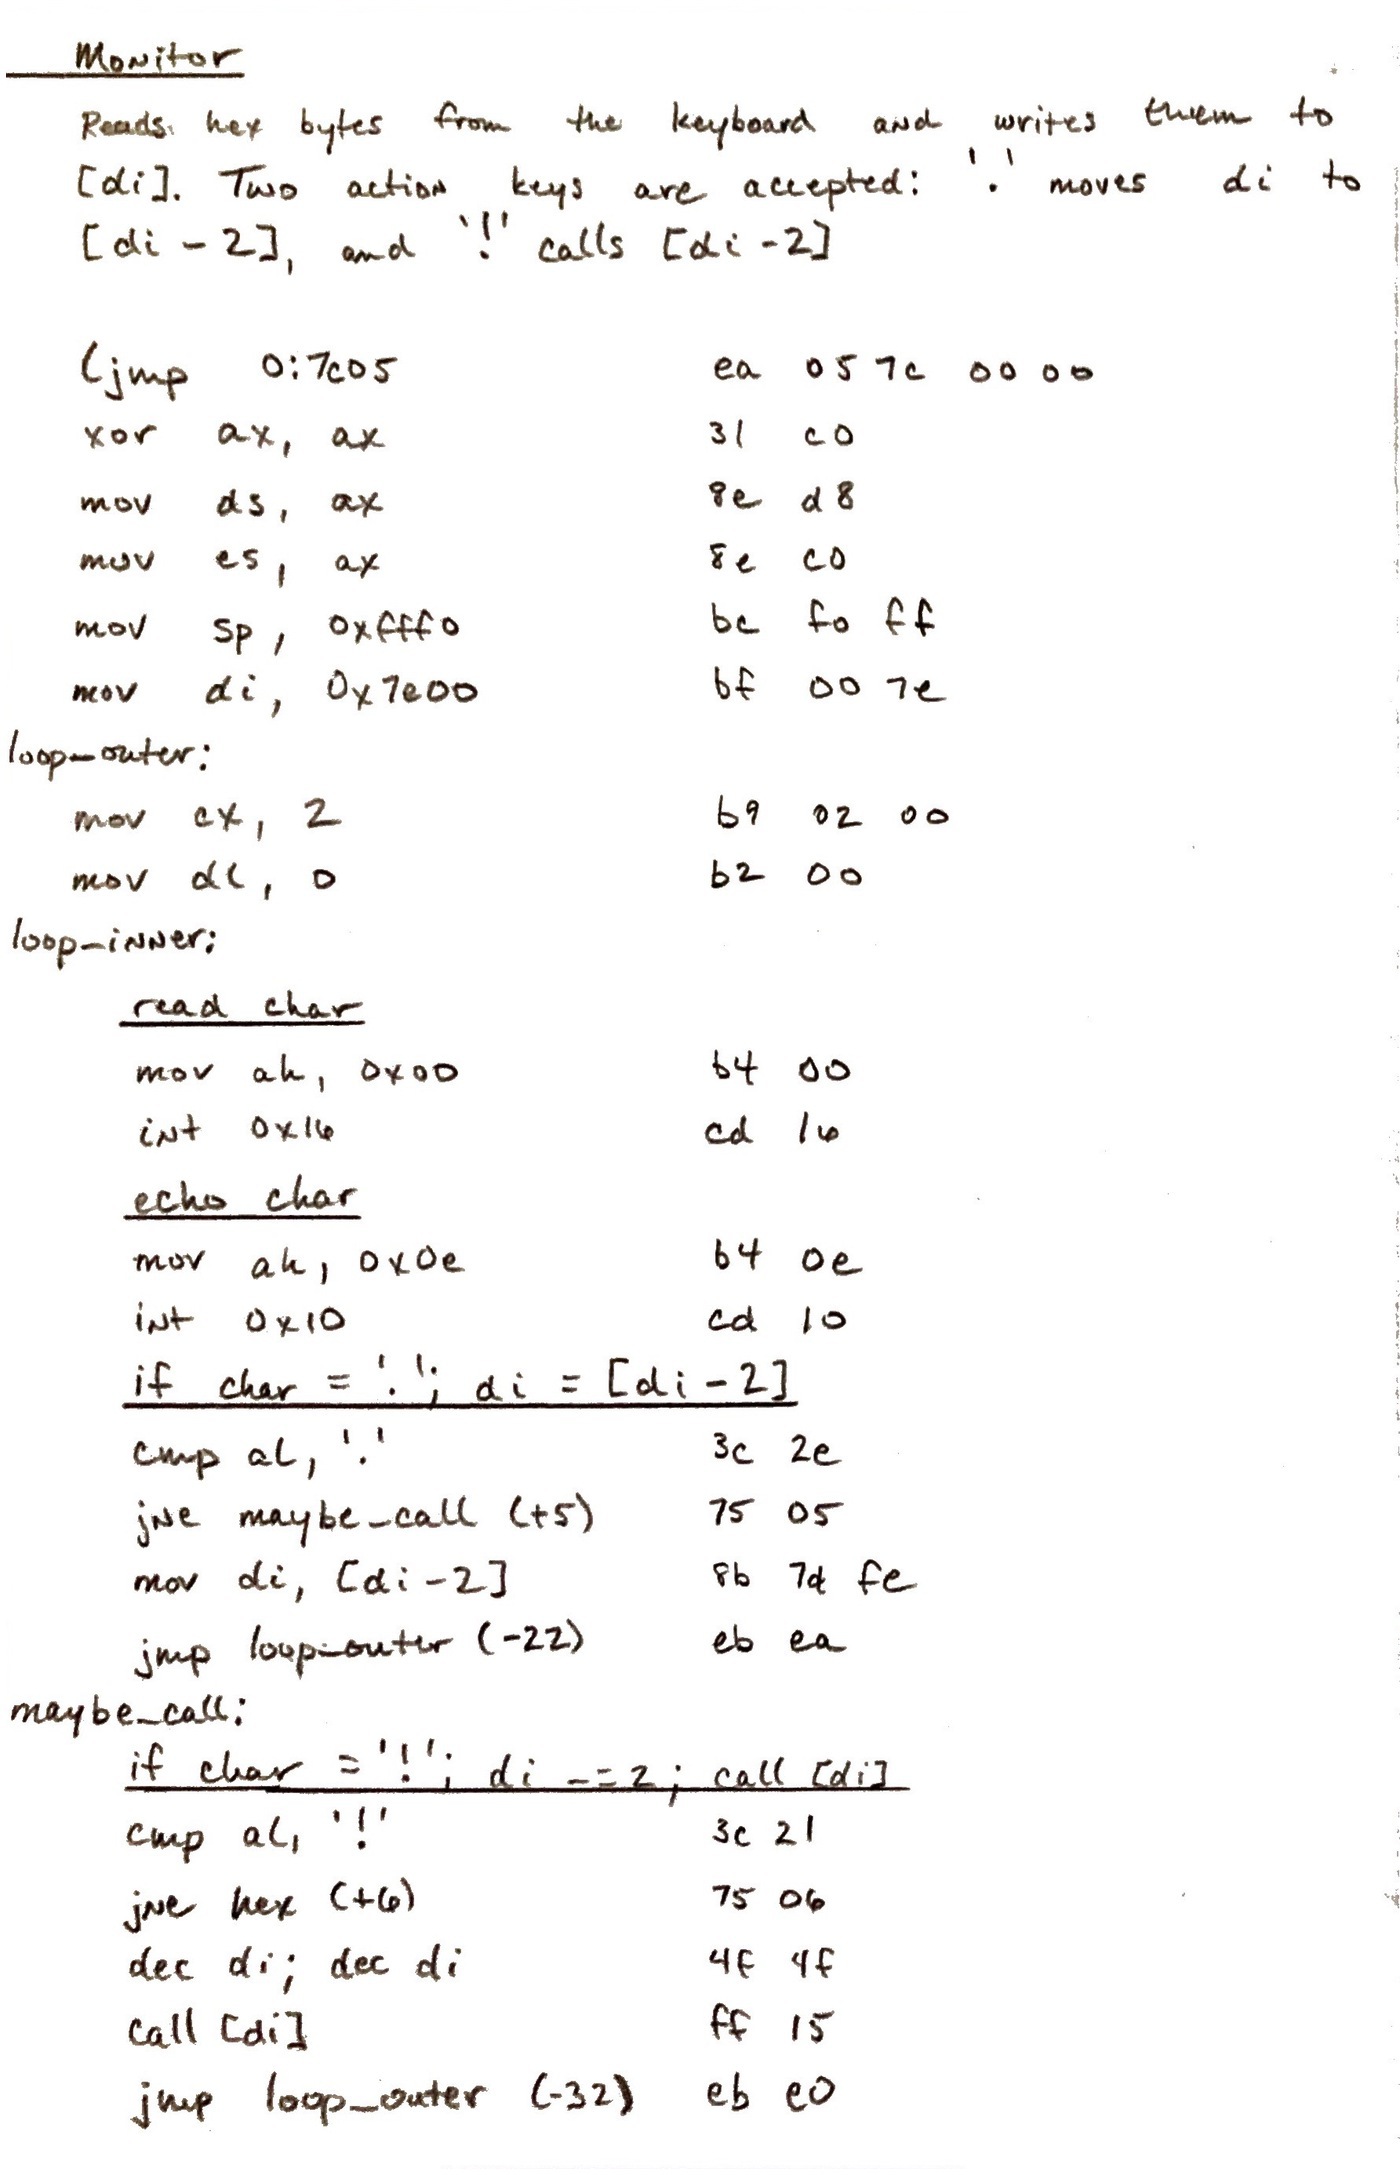 Monitor
Reads hex bytes from the keyboard and writes them to
[di]. Two action keys are accepted: '.' moves di to
[di - 2], and '!' calls [di - 2]
ljmp 0:7c05 ea 05 7c 00 00
xor ax, ax 31 c0
mov ds, ax 8e d8
mov es, ax 8e c0
mov sp, 0xfff0 bc f0 ff
mov di, 0x7e00 bf 00 7e
loop_outer:
mov cx, 2 b9 02 00
mov dl, 0 b2 00
loop_inner:
read char
mov ah, 0x00 b4 00
int 0x16 cd 16
echo char
mov ah, 0x0e b4 0e
int 0x10 cd 10
if char = '.'; di = [di - 2]
cmp al, '.' 3c 2e
jne maybe_call (+5) 75 05
mov di, [di - 2] 8b 7d fe
jmp loop_outer (-22) eb ea
maybe_call:
if char = '!'; di -= 2; call [di]
cmp al, '!' 3c 21
jne hex (+6) 75 06
dec di; dec di 4f 4f
call [di] ff 15
jmp loop_outer (-32) eb e0